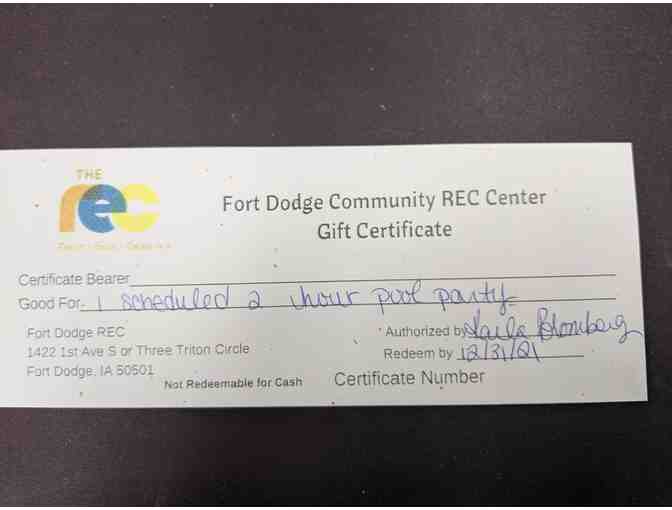 THE
rec
Fort Dodge Community REC Center
Gift Certificate
Certificate Bearer
Good For 1 scheduled 2 hour pool party
Fort Dodge REC
1422 1st Ave S or Three Triton Circle
Fort Dodge, IA 50501
Not Redeemable for Cash
Authorized by Blomberg
Redeem by 12/31/21
Certificate Number